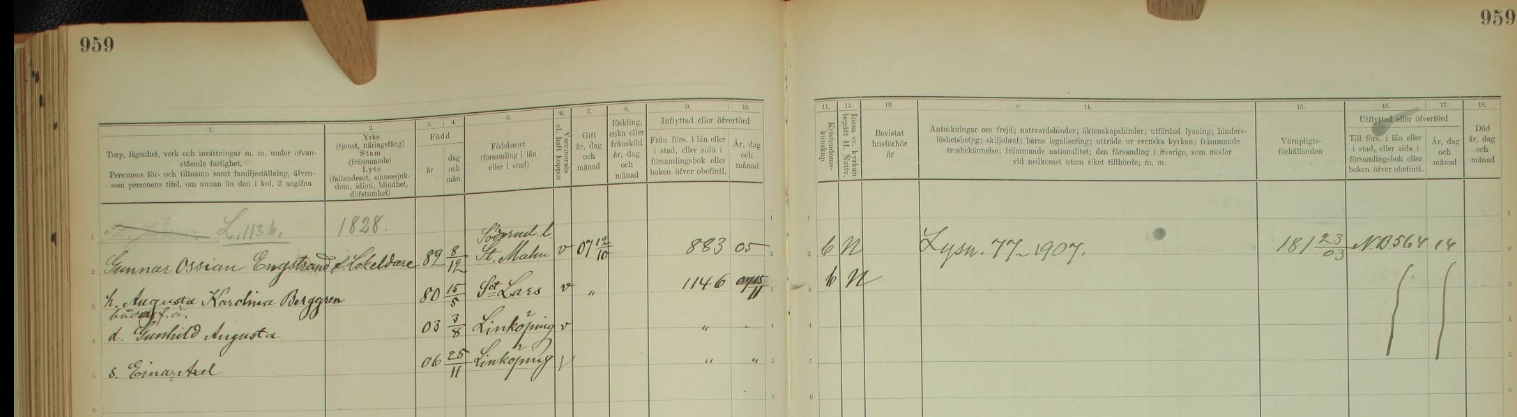 959
959
1.
2.
3.
4.
5.
6.
7.
8.
9.
10.
Torp, lägenhet, verk och inrättningar m. m. under ofvanstående fastighet.
Personens för- och tillnamn samt familjeställning, äfvensom personens titel, om annan än den i kol. 2 angifna
Yrke
(tjenst, näringsfång)
Stam
(främmande)
Lyte
(fallandesot, sinnessjukdom, idioti, blindhet, döfstumhet)
Född
år
dag och mån.
Födelseort
(församling i län eller i stad)
Vaccinerats el. haft koppor
Gift år, dag och månad
Enkling, enka eller frånskild år, dag och månad
Inflyttad eller öfverförd
Från förs. i län eller i stad, eller sida i församlingsbok eller boken öfver obefintl.
År, dag och månad
11.
12.
13.
14.
15.
16.
17.
18.
Kristendomskunskap
Inom sv. kyrkan begått H. Nattv.
Bevistat husförhör år
Anteckningar om frejd; nattvardshinder; äktenskapshinder; utfärdad lysning; hinderslöshetsbetyg; skiljobref; barns legalisering; utträde ur svenska kyrkan; främmande trosbekännelse; främmande nationalitet; den församling i Sverige, som möder vid nedkomst utom riket tillhörde; m. m.
Värnpligtsförhållanden
Utflyttad eller öfverförd
Till förs. i län eller i stad, eller sida i församlingsbok eller boken öfver obefintl.
År, dag och månad
Död år, dag och månad
L. 113 b. 1828.
Gunnar Ossian Engstrand Lokeldare 82 8/12 St. Malm v 07 12/10 883 05 b N Lysn. 77-1907. 181 23/03 NB564 14
h. Augusta Karolina Berggren 80 15/5 St Lars v „ 1146 b N
d. Gunhild Augusta 03 3/8 Linköping v „ „
s. Einar Axel 06 25/11 Linköping „ „